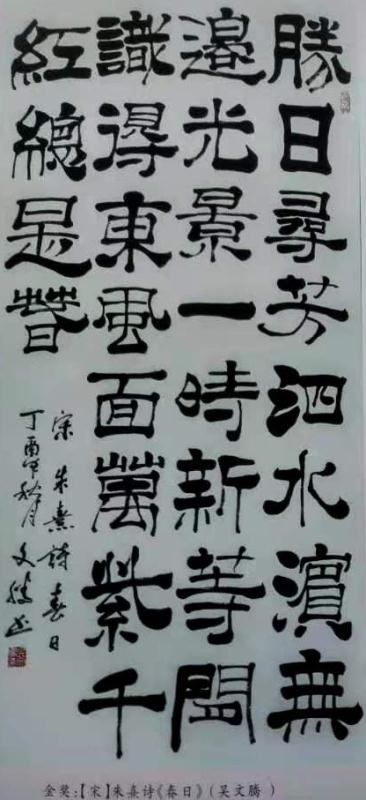 勝日尋芳泗水濵無
邉光景一時新等閒
識得東風面萬紫千
紅總是春
宋朱熹詩春日
丁酉年秋月文騰書
金奖:【宋】朱熹诗《春日》(吴文腾)